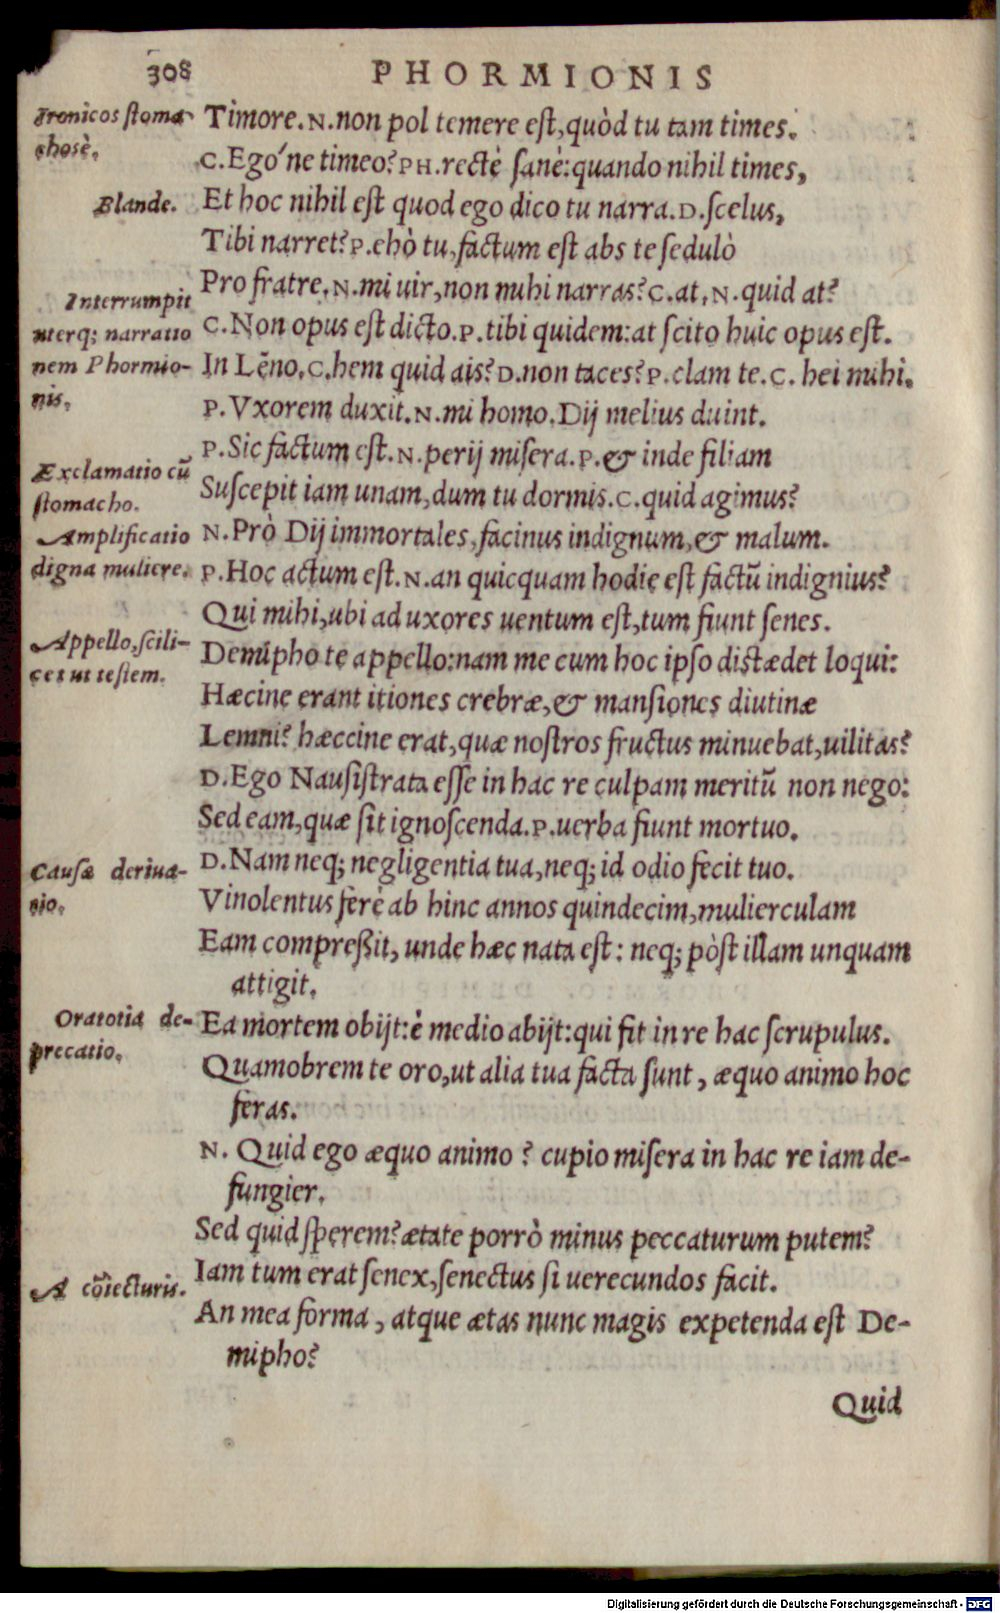 308
PHORMIONIS
Ironicos stoma-
chosè.
Timore. N. non pol temere est, quòd tu tam times.
C. Ego'ne timeo? PH. rectè sanè: quando nihil times,
Blande.
Et hoc nihil est quod ego dico tu narra. D. scelus,
Tibi narret? P. ehò tu, factum est abs te sedulò
Pro fratre. N. mi uir, non mihi narras? C. at. N. quid at?
Interrumpit
interq; narratio
nem Phormio-
nis.
C. Non opus est dicto. P. tibi quidem: at scito huic opus est.
In Lẽno. C. hem quid ais? D. non taces? P. clam te. C. hei mihi.
P. Vxorem duxit. N. mi homo. Dij melius duint.
P. Sic factum est. N. perij misera. P. & inde filiam
Exclamatio cũ
stomacho.
Suscepit iam unam, dum tu dormis. C. quid agimus?
Amplificatio
digna muliere.
N. Prò Dij immortales, facinus indignum, & malum.
P. Hoc actum est. N. an quicquam hodie est factũ indignius?
Qui mihi, ubi ad uxores uentum est, tum fiunt senes.
Appello, scili-
cet ut testem.
Demipho te appello: nam me cum hoc ipso distædet loqui:
Hæcine erant itiones crebræ, & mansiones diutinæ
Lemni? hæccine erat, quæ nostros fructus minuebat, uilitas?
D. Ego Nausistrata esse in hac re culpam meritũ non nego:
Sed eam, quæ sit ignoscenda. P. uerba fiunt mortuo.
Causæ deriua-
tio.
D. Nam neq; negligentia tua, neq; id odio fecit tuo.
Vinolentus ferè ab hinc annos quindecim, mulierculam
Eam compreßit, unde hæc nata est: neq; pòst illam unquam
attigit.
Oratoria de-
precatio.
Ea mortem obijt: è medio abijt: qui fit in re hac scrupulus.
Quamobrem te oro, ut alia tua facta sunt, æquo animo hoc
feras.
N. Quid ego æquo animo? cupio misera in hac re iam de-
fungier.
Sed quid sperem? ætate porrò minus peccaturum putem?
A cõiecturis.
Iam tum erat senex, senectus si uerecundos facit.
An mea forma, atque ætas nunc magis expetenda est De-
mipho?
Quid
Digitalisierung gefördert durch die Deutsche Forschungsgemeinschaft - DFG